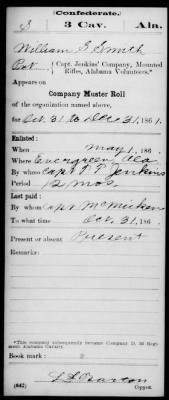 (Confederate.)
S 3 Cav. Ala.
William S Smith
Pvt Capt. Jenkins' Company, Mounted
Rifles, Alabama Volunteers.*
Appears on
Company Muster Roll
of the organization named above,
for Oct. 31 to Dec 31, 1861.
Enlisted:
When May 1, 186
Where Evergreen Ala
By whom Capt T P Jenkins
Period 12 mos.
Last paid:
By whom Capt McMicken
To what time Oct. 31, 186
Present or absent Present
Remarks:
*This company subsequently became Company D, 3d Regiment Alabama Cavalry.
Book mark:
(642) Copyist.